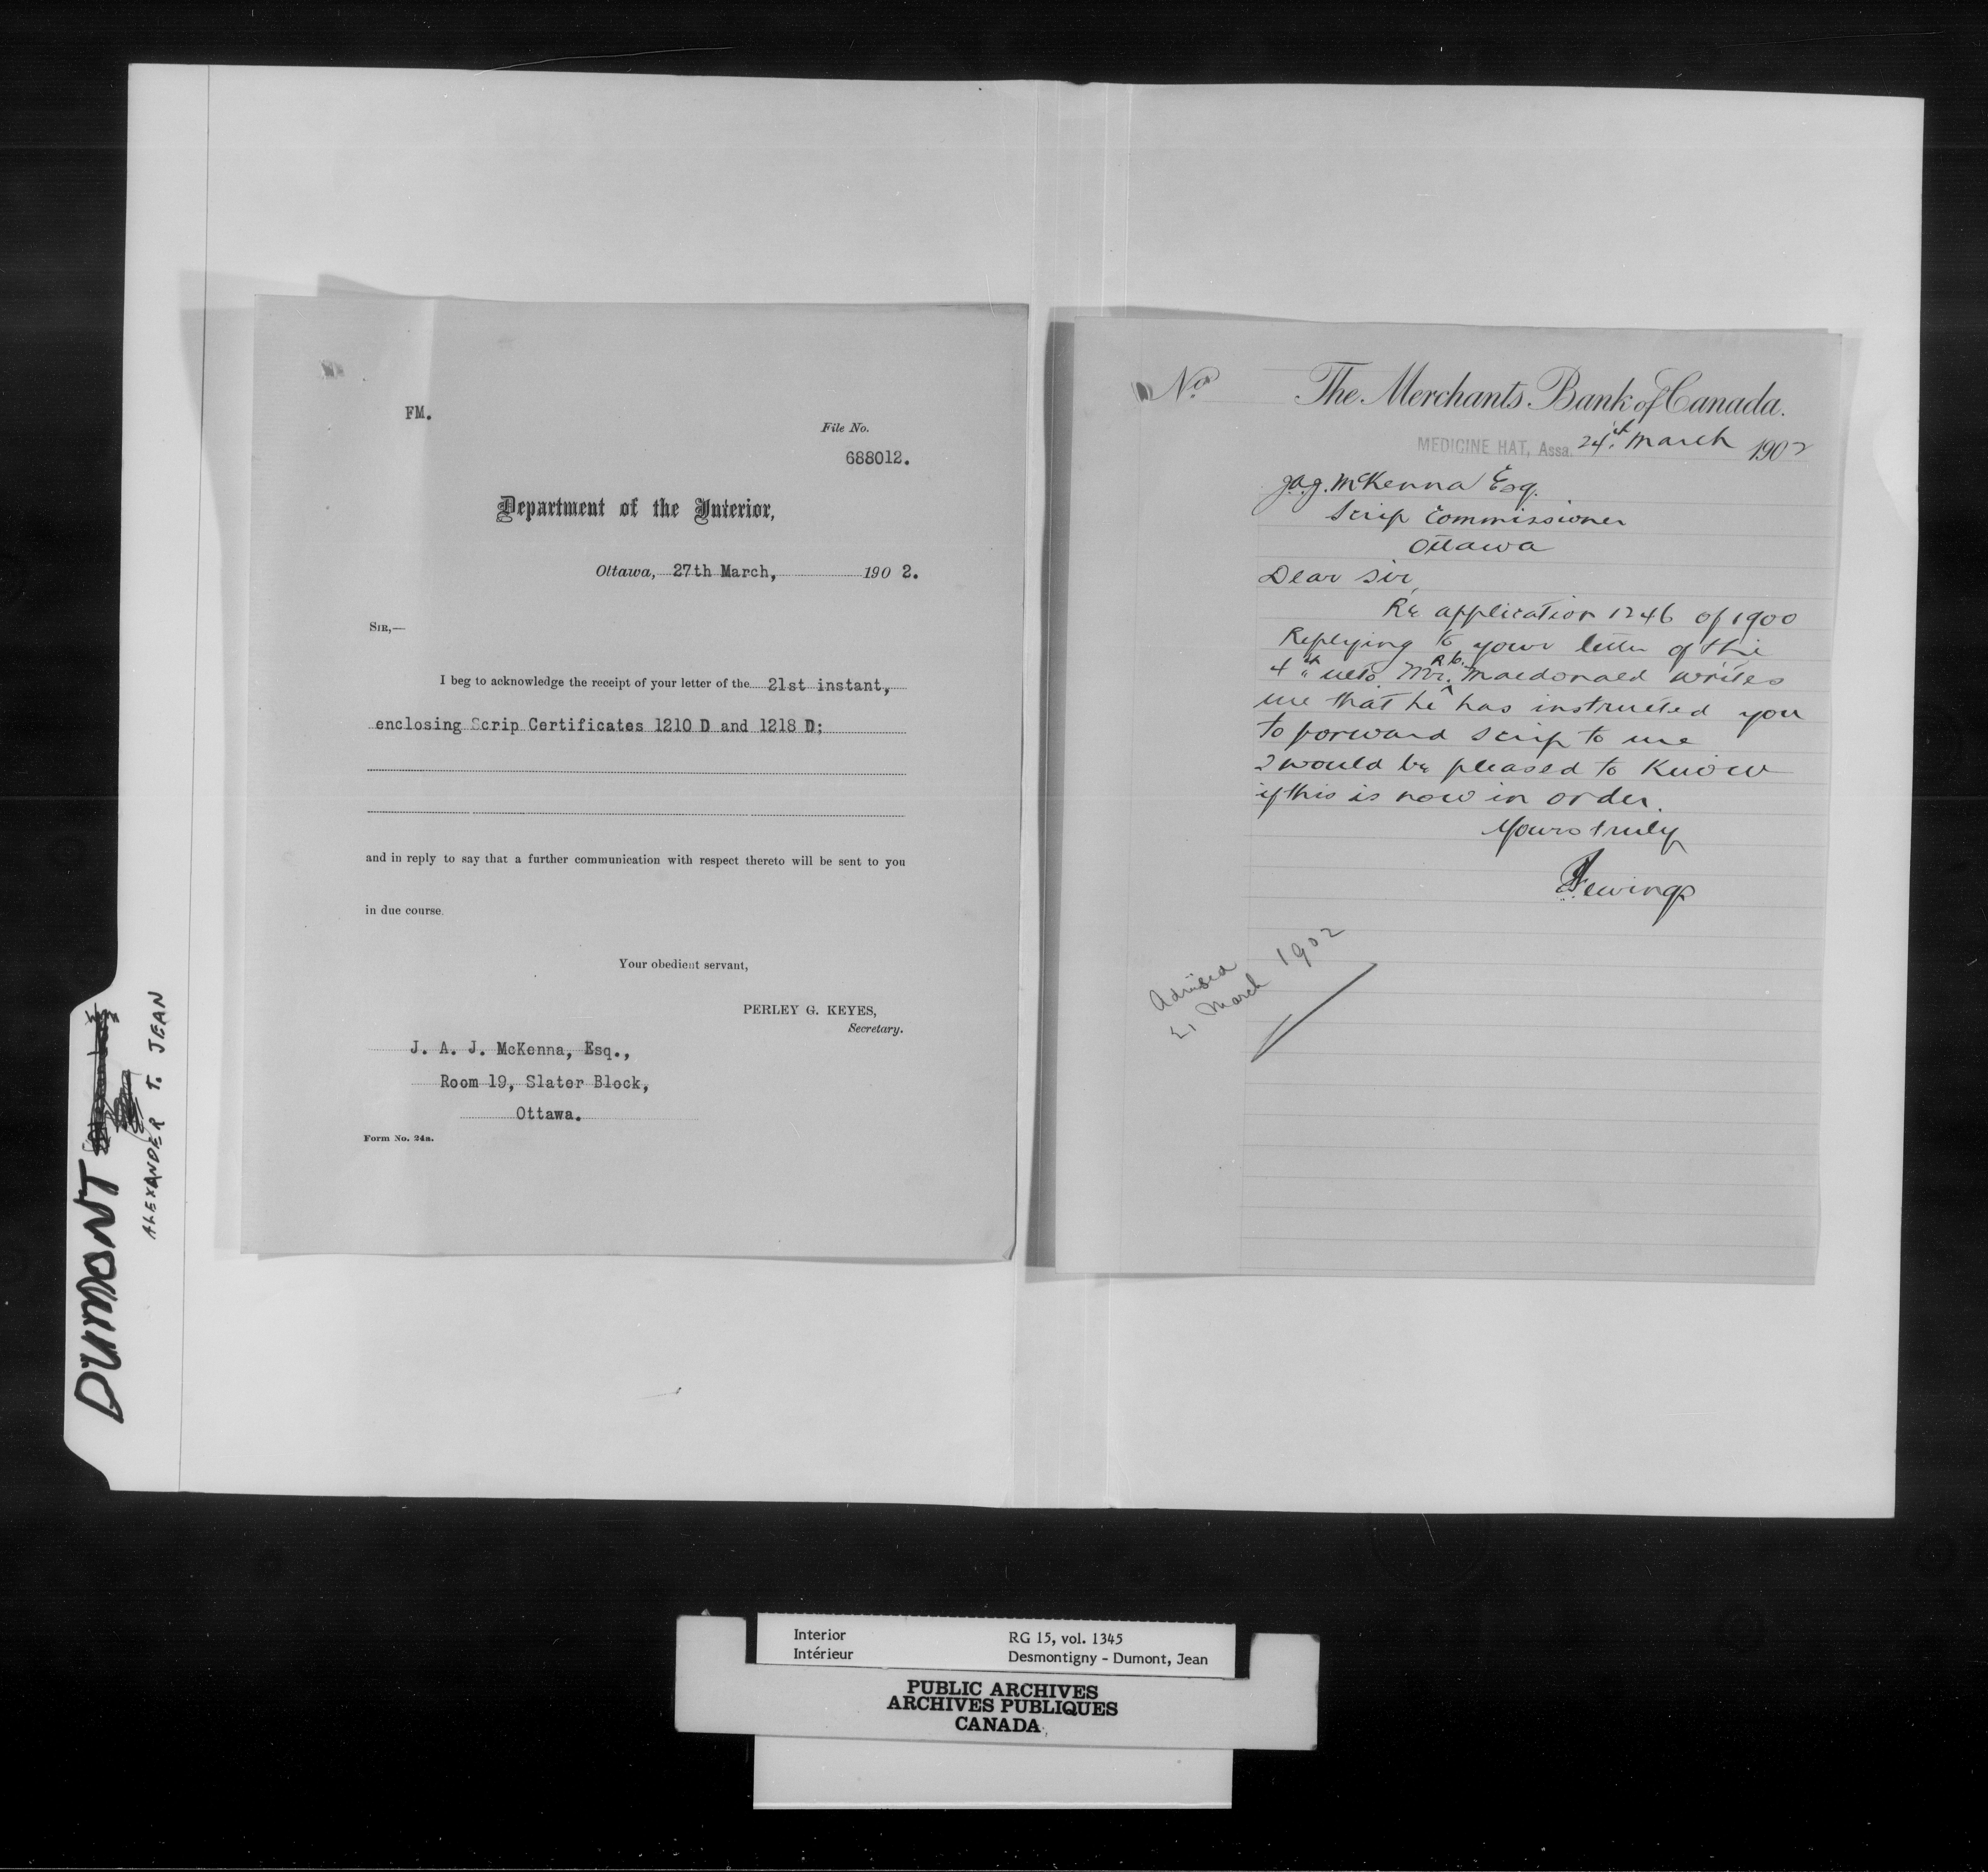 DUMONT
ALEXANDER T. JEAN
FM.
File No.
688012.
Department of the Interior,
Ottawa, 27th March, 190 2.
SIR,—
I beg to acknowledge the receipt of your letter of the 21st instant,
enclosing Scrip Certificates 1210 D and 1218 D;
and in reply to say that a further communication with respect thereto will be sent to you
in due course.
Your obedient servant,
PERLEY G. KEYES,
Secretary.
J. A. J. McKenna, Esq.,
Room 19, Slater Block,
Ottawa.
Form No. 24a.
No. The Merchants Bank of Canada.
MEDICINE HAT, Assa. 24th March 1902
J.A.J. McKenna Esq.
Scrip Commissioner
Ottawa
Dear Sir
Re application 1246 of 1900
Replying to your letter of the
4th ulto Mr. R.C. Macdonald writes
me that he has instructed you
to forward scrip to me
I would be pleased to know
if this is now in order.
Yours truly
Advised
March 1902
Interior
Intérieur
RG 15, vol. 1345
Desmontigny - Dumont, Jean
PUBLIC ARCHIVES
ARCHIVES PUBLIQUES
CANADA